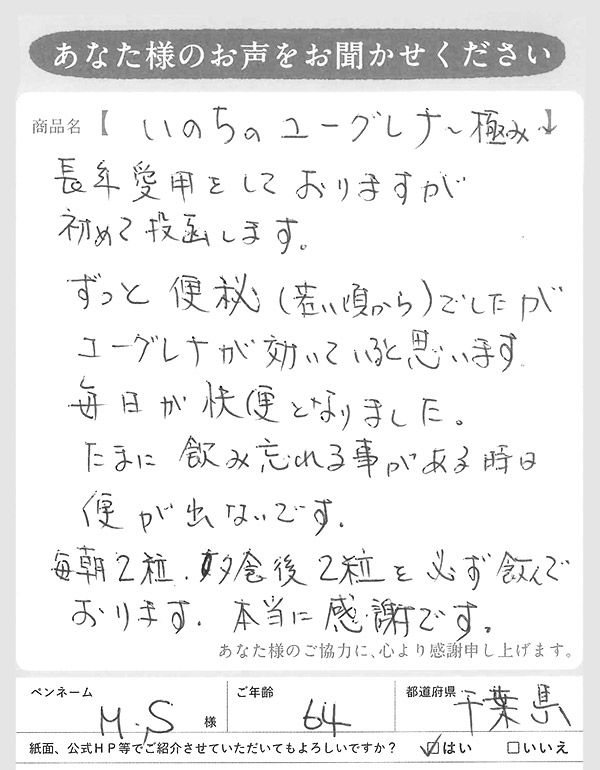 あなた様のお声をお聞かせください
商品名【 いのちのユーグレナ〜極み〜】
長年愛用をしておりますが
初めて投函します。
ずっと便秘(若い頃から)でしたが
ユーグレナが効いていると思います
毎日が快便となりました。
たまに飲み忘れる事がある時は
便が出ないです。
毎朝2粒、夕食後2粒を必ず飲んで
おります。本当に感謝です。
あなた様のご協力に、心より感謝申し上げます。
ペンネーム M.S 様 ご年齢 64 都道府県 千葉県
紙面、公式HP等でご紹介させていただいてもよろしいですか? ☑はい □いいえ